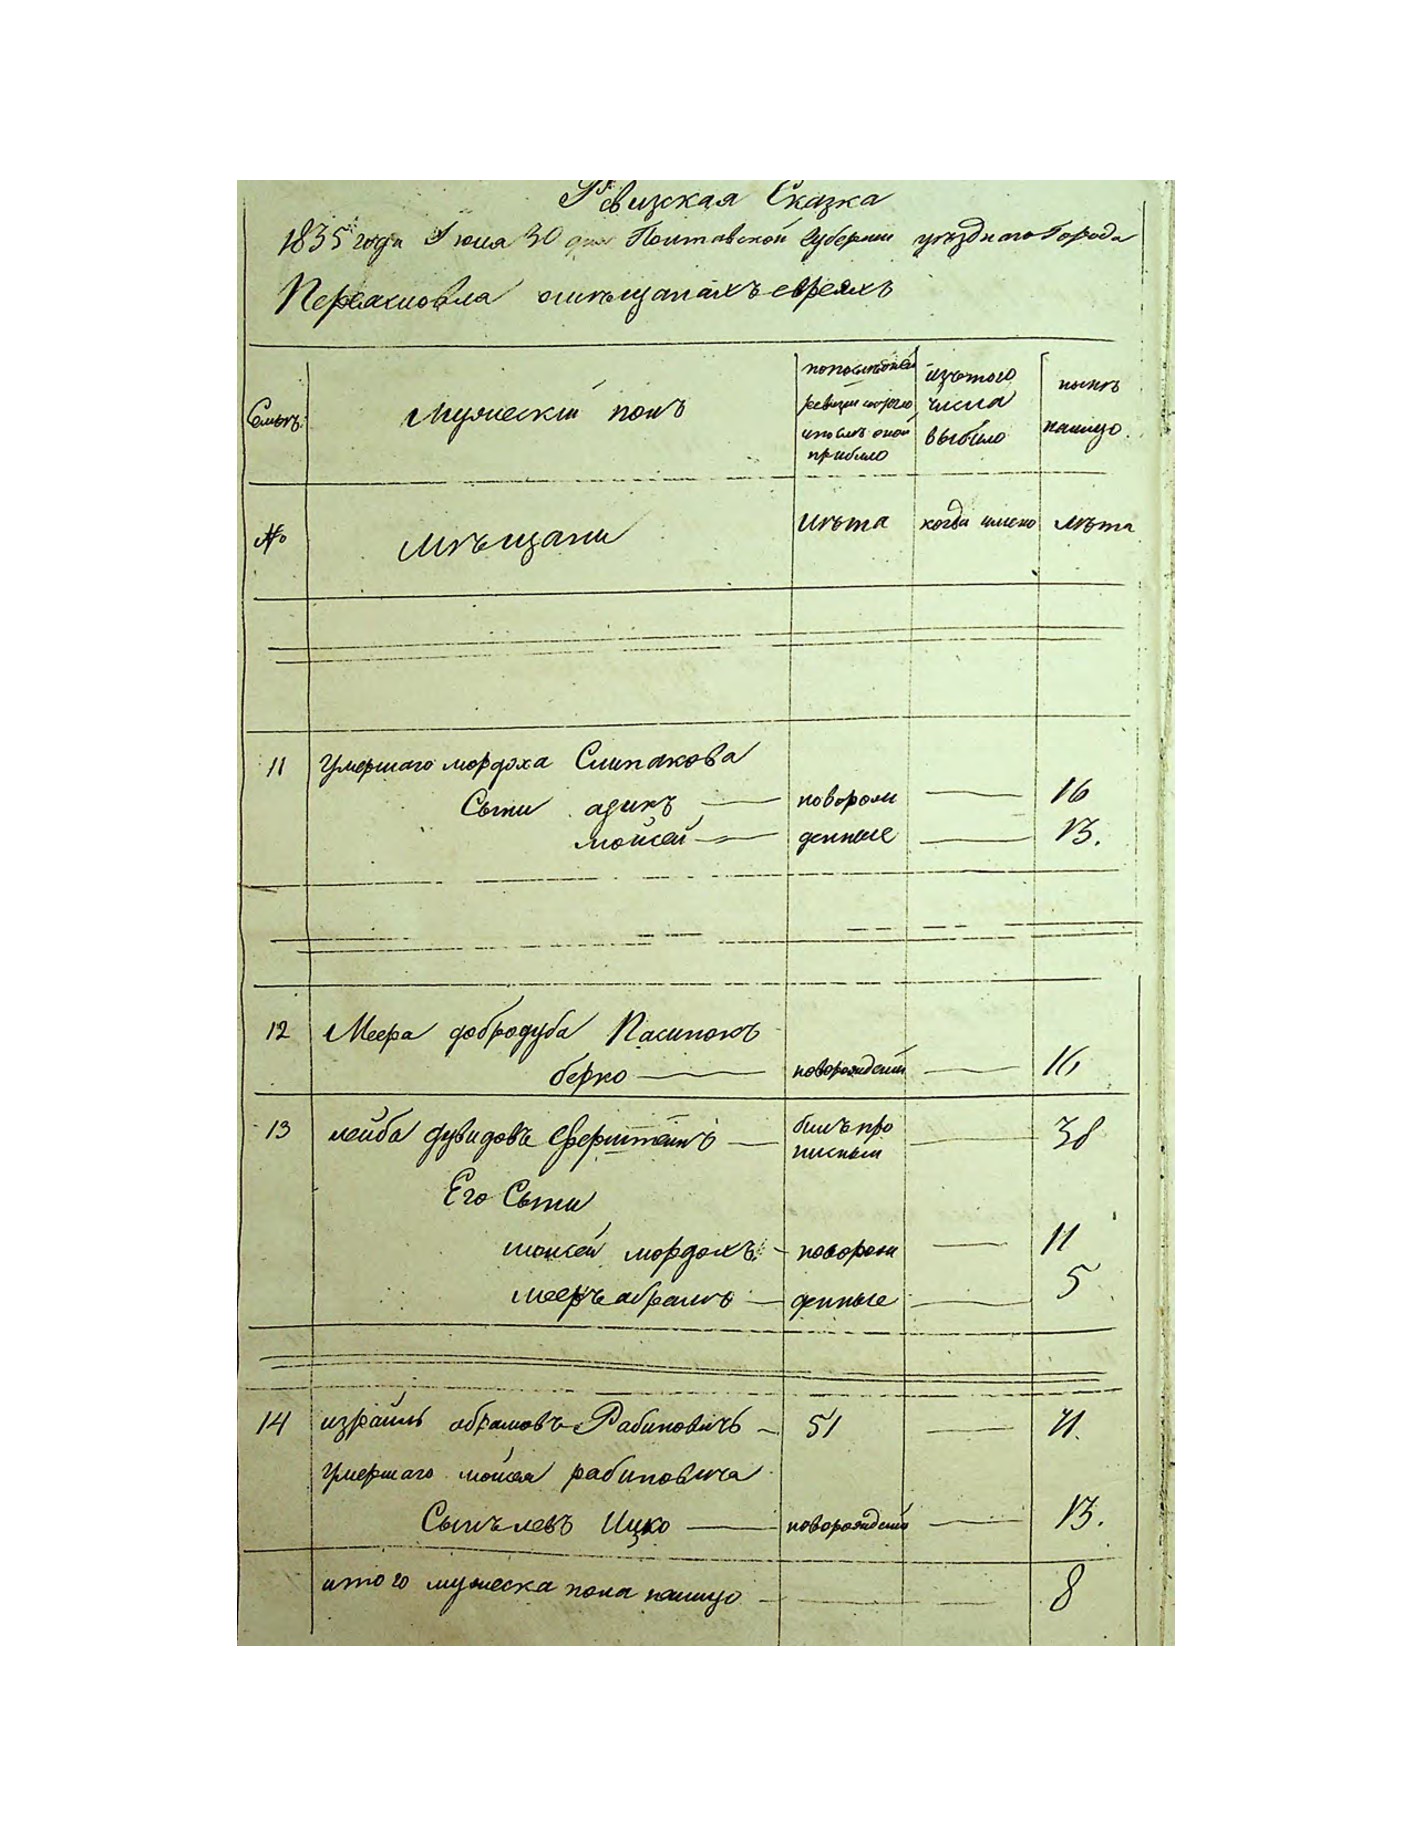 Ревизская Сказка
1835 года Июня 30 дня Полтавской губернии уездного Города
Переяславля о мещанахъ евреяхъ
Семьи
Мужескій полъ
по последней
ревизіи состояло
и после оной
прибыло
изъ того
числа
выбыло
ныне
налицо.
№
мещани
лета
когда имено
лета
11
умершаго мордоха Слипакова
Сыни адикъ — новорож — 16
мойсей — денные — 13.
12
Меера добродуба Пасинокъ
берко — новорожденій — 16
13
лейба дувидовъ Сферштейнъ — билъ про — 38
писныи
Его Сыни
мойсей мордохъ — новорож — 11
мееръ абрамъ — денные — 5
14
израиль абрамовъ Рабиновичъ — 51 — 71.
умершаго мойсея рабиновича
Сынъ левъ Ицко — новорожденій — 13.
итого мужеска пола налицо — 8